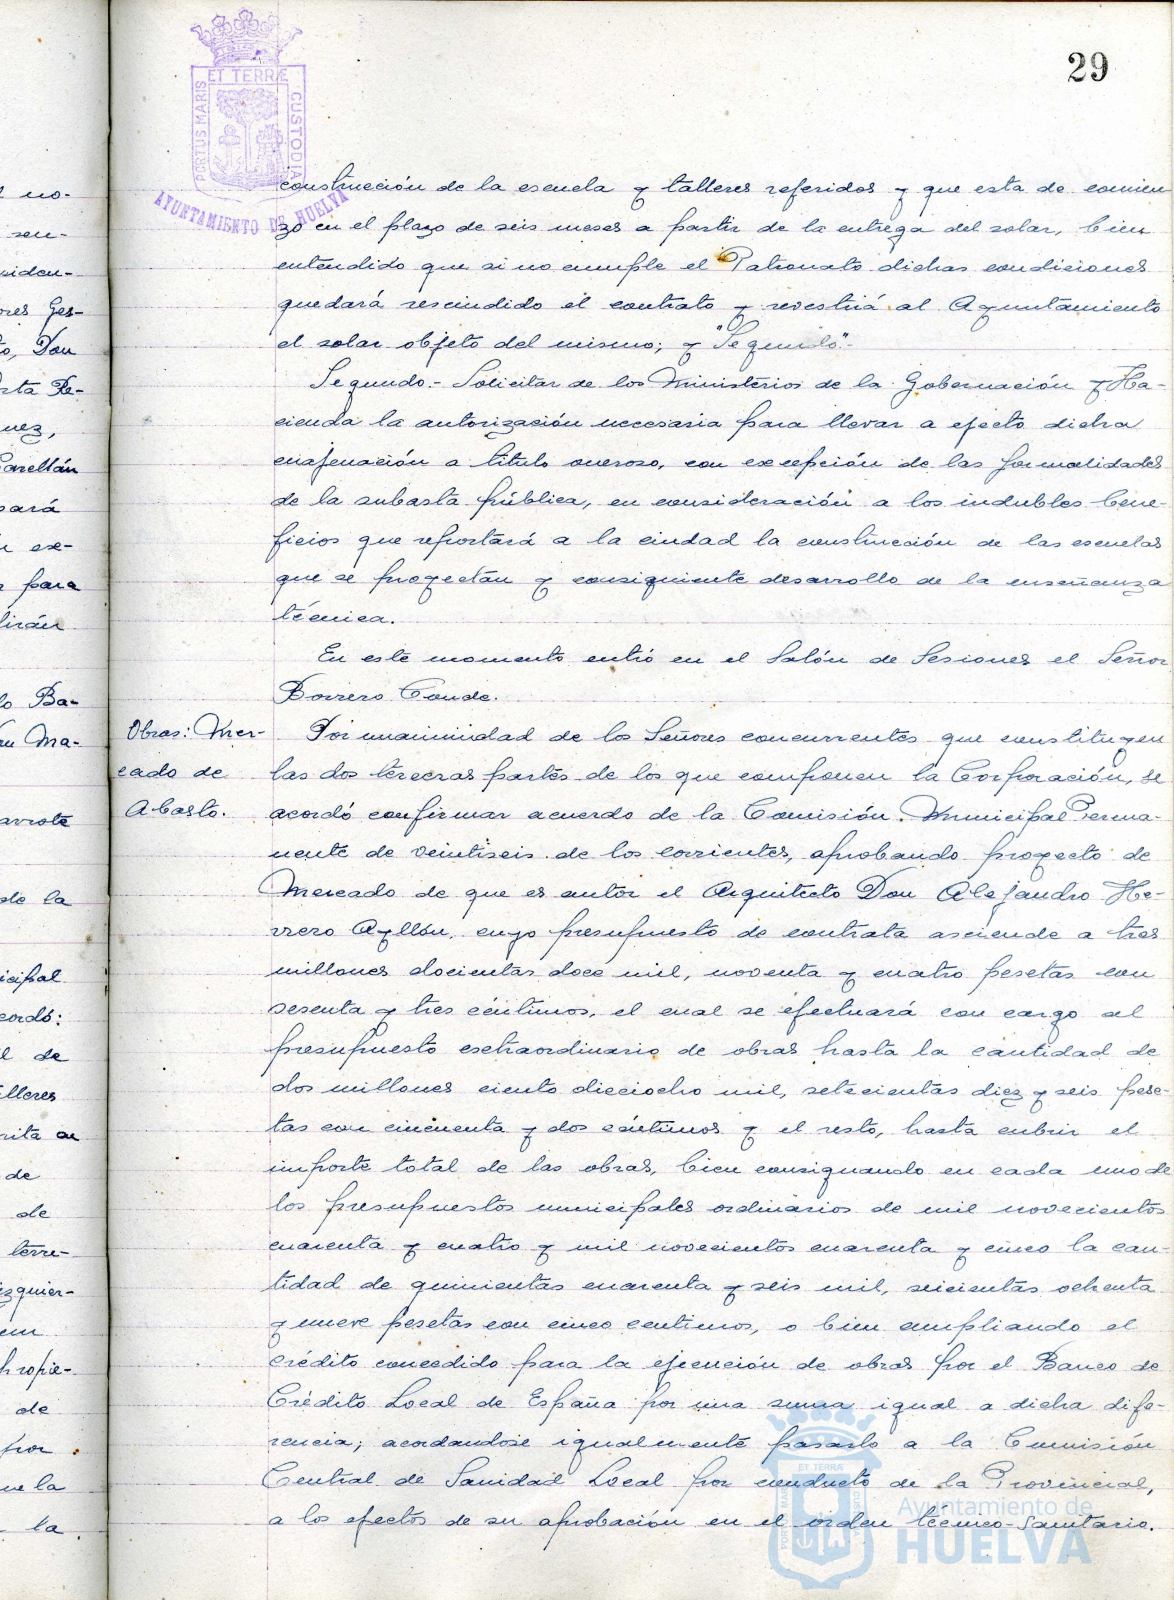 29
PORTUS MARIS ET TERRÆ CUSTODIA
AYUNTAMIENTO DE HUELVA
construcción de la escuela y talleres referidos y que esta de comien
zo en el plazo de seis meses a partir de la entrega del solar, bien
entendido que si no cumple el Patronato dichas condiciones
quedará rescindido el contrato y revestirá al Ayuntamiento
el solar objeto del mismo; y "Segundo".-
Segundo.- Solicitar de los Ministerios de la Gobernación y Ha-
cienda la autorización necesaria para llevar a efecto dicha
enajenación a título oneroso, con excepción de las formalidades
de la subasta pública, en consideración a los indubles bene-
ficios que reportará a la ciudad la construcción de las escuelas
que se proyectan y consiguiente desarrollo de la enseñanza
técnica.
En este momento entró en el Salón de Sesiones el Señor
Borrero Conde.
Obras: Mer-
cado de
Abasto.
Por unanimidad de los Señores concurrentes que constituyen
las dos terceras partes de los que componen la Corporación, se
acordó confirmar acuerdo de la Comisión Municipal Perma-
nente de veintiseis de los corrientes, aprobando proyecto de
Mercado de que es autor el Arquitecto Don Alejandro He-
rrero Ayllón, cuyo presupuesto de contrata asciende a tres
millones docientas doce mil, noventa y cuatro pesetas con
sesenta y tres céntimos, el cual se efectuará con cargo al
presupuesto esctraordinario de obras hasta la cantidad de
dos millones ciento dieciocho mil, setecientas diez y seis pese-
tas con cincuenta y dos céntimos y el resto, hasta cubrir el
importe total de las obras, bien consignando en cada uno de
los presupuestos municipales ordinarios de mil novecientos
cuarenta y cuatro y mil novecientos cuarenta y cinco la can-
tidad de quinientas cuarenta y seis mil, seicientas ochenta
y nueve pesetas con cinco centimos, o bien ampliando el
crédito concedido para la ejecución de obras por el Banco de
Crédito Local de España por una suma igual a dicha dife-
rencia; acordandose igualmente pasarlo a la Comisión
Central de Sanidad Local por conducto de la Provincial,
a los efectos de su aprobación en el orden técnico-sanitario.
Ayuntamiento de
HUELVA